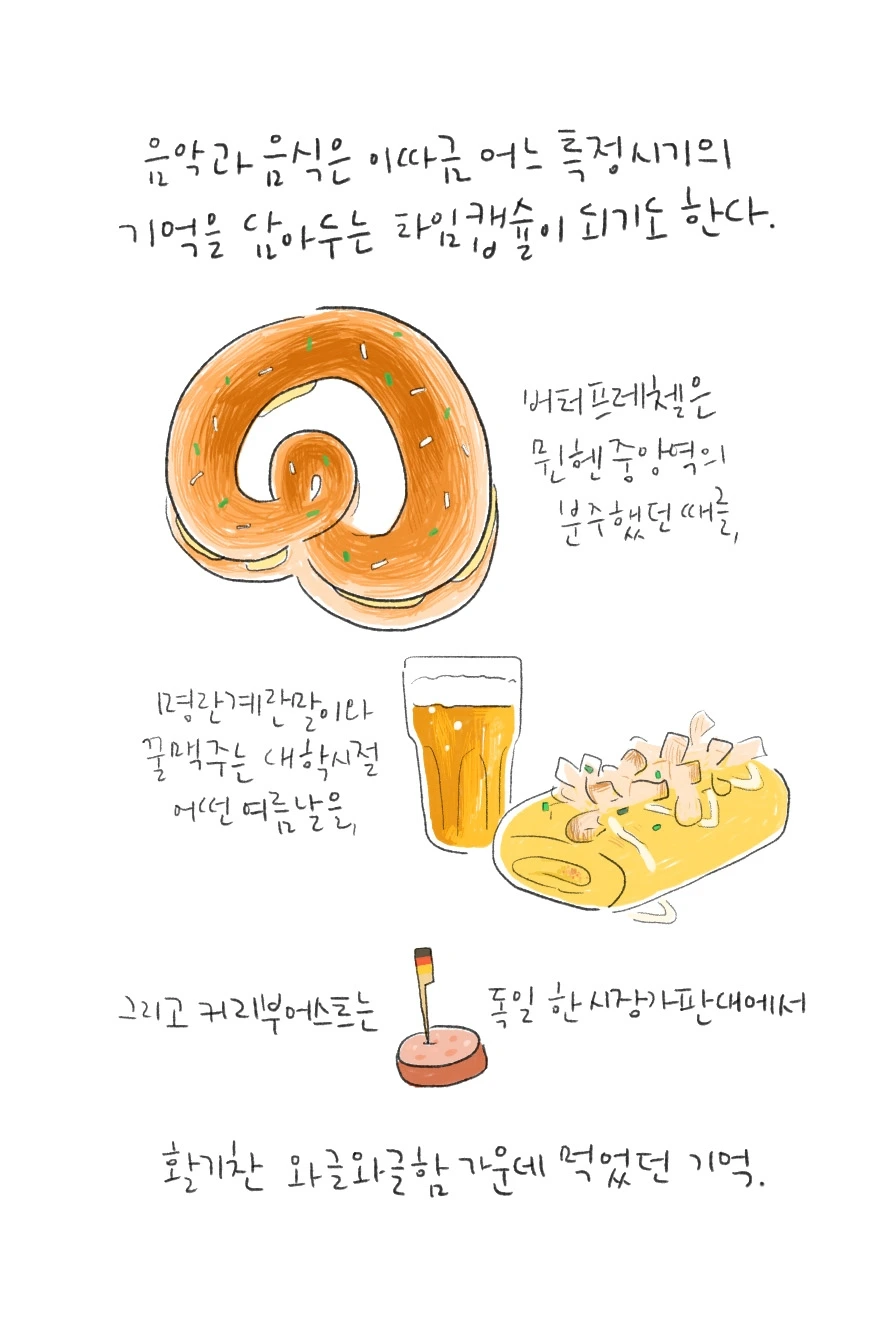 음악과 음식은 이따금 어느 특정시기의
기억을 담아두는 타임캡슐이 되기도 한다.
버터프레첼은
뮌헨중앙역의
분주했던 때를,
명란계란말이와
꿀맥주는 대학시절
어떤 여름날을,
그리고 커리부어스트는
독일 한 시장가판대에서
활기찬 와글와글함 가운데 먹었던 기억.